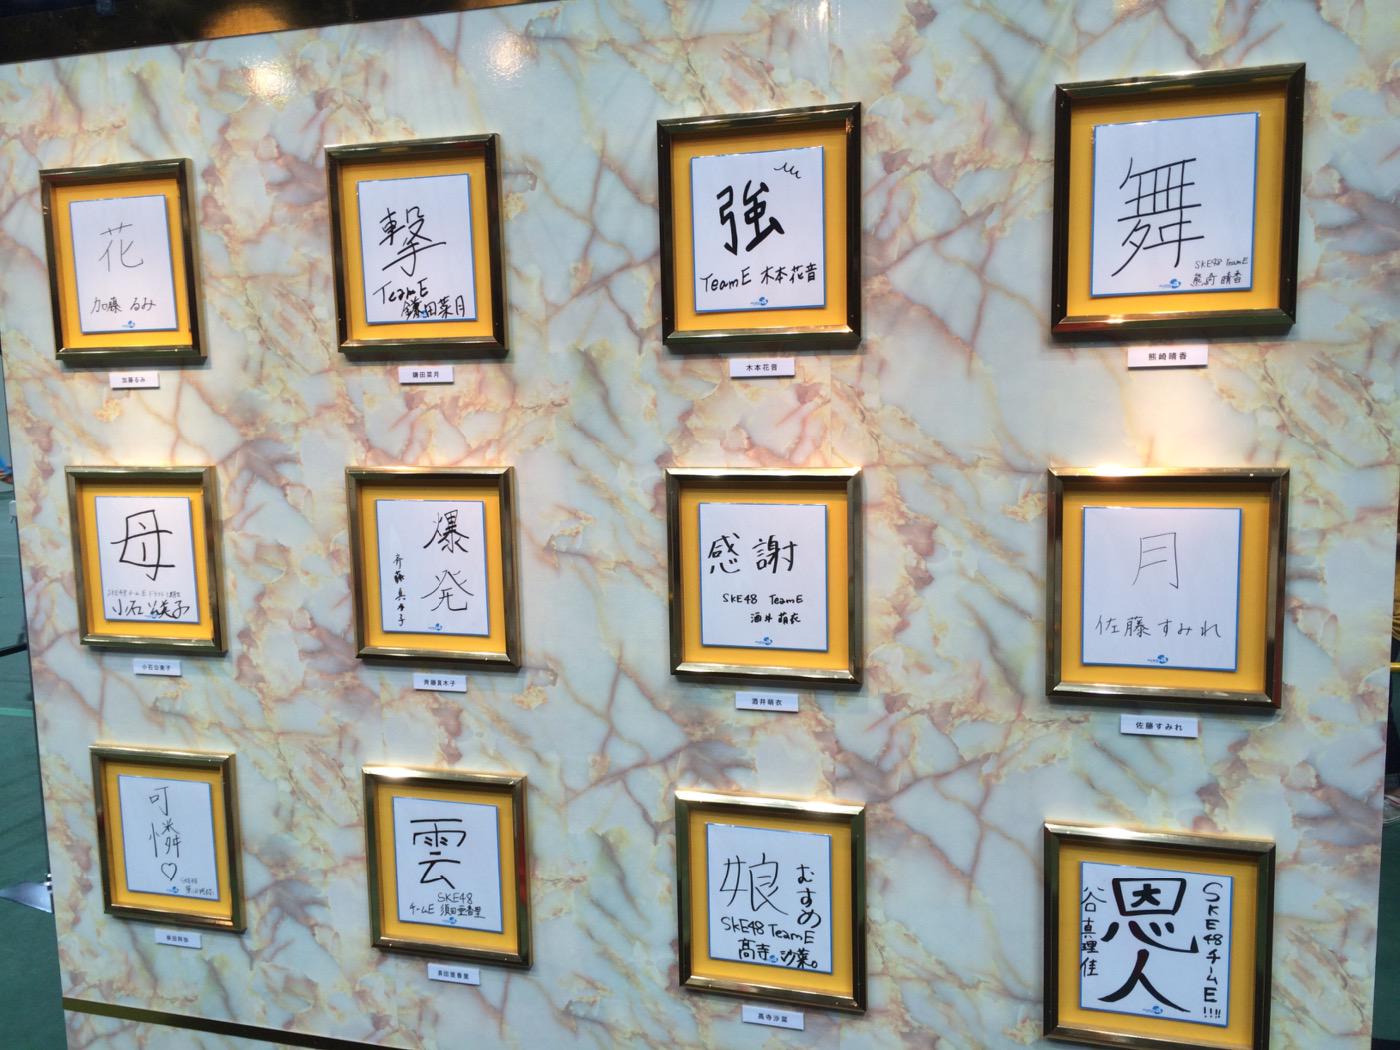 花
加藤 るみ
加藤るみ
撃
TeamE
鎌田菜月
鎌田菜月
強
TeamE 木本花音
木本花音
舞
SKE48 TeamE
熊崎晴香
熊崎晴香
母
小石公美子
小石公美子
爆発
斉藤真木子
斉藤真木子
感謝
SKE48 TeamE
酒井萌衣
酒井萌衣
月
佐藤すみれ
佐藤すみれ
可憐♡
SKE48
雲
SKE48
チームE 須田亜香里
須田亜香里
娘
むすめ
SKE48 TeamE
髙寺沙菜。
髙寺沙菜
SKE48チームE!!!!
恩人
谷真理佳